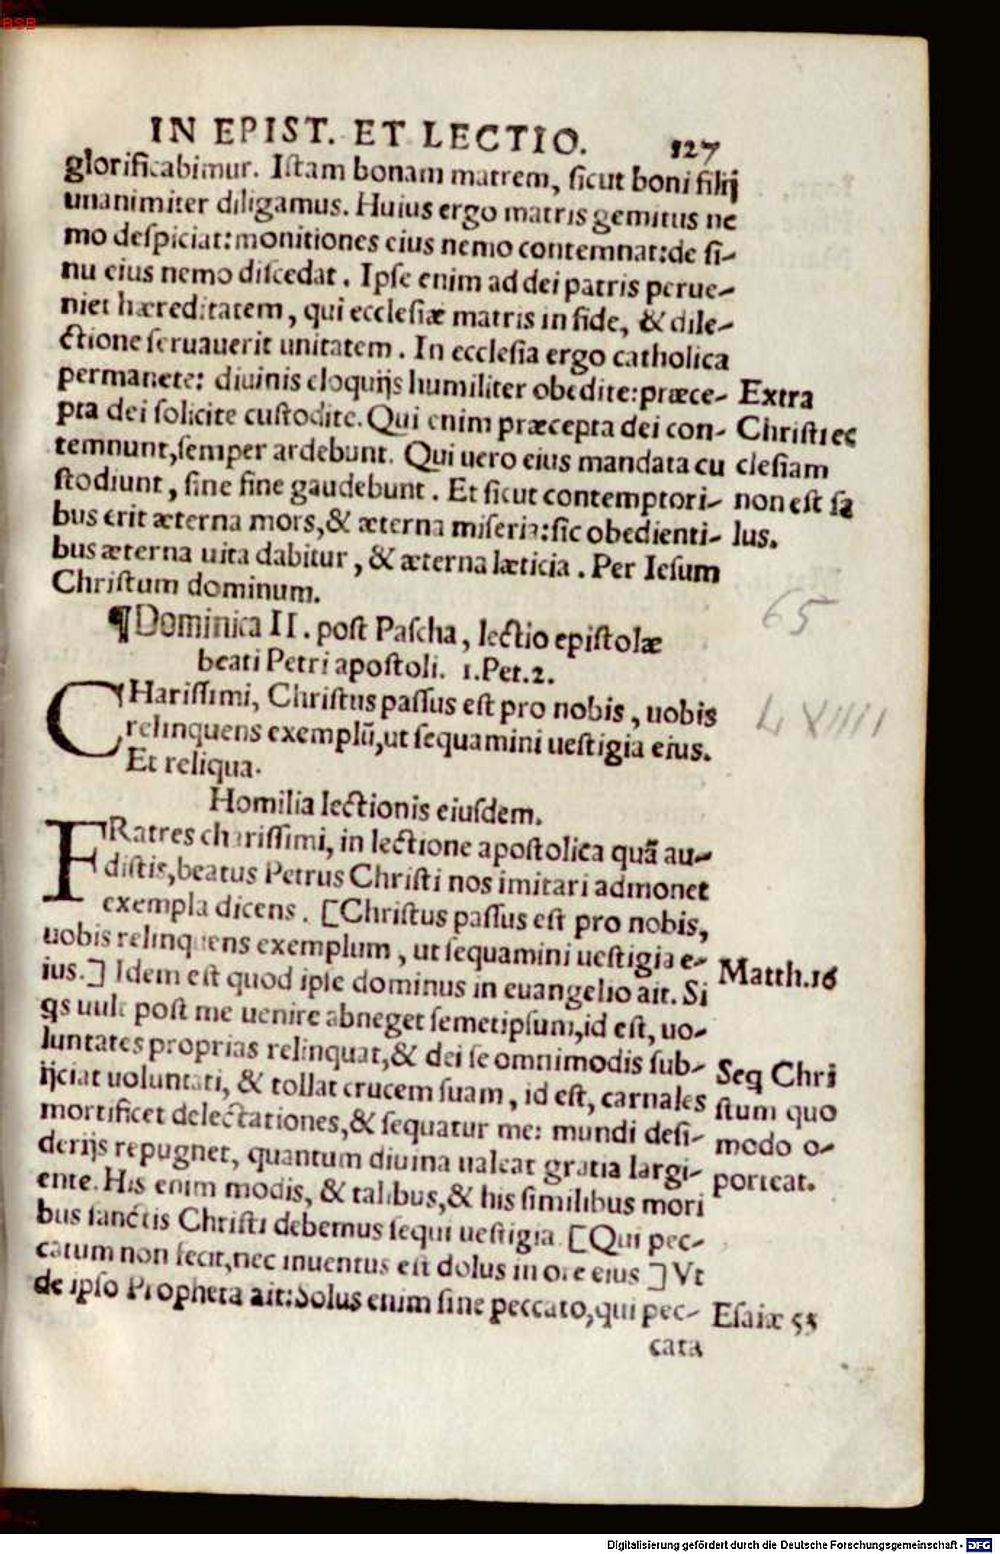 BSB
IN EPIST. ET LECTIO. 127
glorificabimur. Istam bonam matrem, sicut boni filij
unanimiter diligamus. Huius ergo matris gemitus ne
mo despiciat: monitiones eius nemo contemnat: de si-
nu eius nemo discedat. Ipse enim ad dei patris perue-
niet hæreditatem, qui ecclesiæ matris in fide, & dile-
ctione seruauerit unitatem. In ecclesia ergo catholica
permanete: diuinis eloquijs humiliter obedite: præce-
pta dei solicite custodite. Qui enim præcepta dei con-
temnunt, semper ardebunt. Qui uero eius mandata cu
stodiunt, sine fine gaudebunt. Et sicut contemptori-
bus erit æterna mors, & æterna miseria: sic obedienti-
bus æterna uita dabitur, & æterna læticia. Per Iesum
Christum dominum.
Extra
Christi ec
clesiam
non est sa
lus.
65
¶ Dominica II. post Pascha, lectio epistolæ
beati Petri apostoli. 1.Pet.2.
CHarissimi, Christus passus est pro nobis, uobis
relinquens exemplū, ut sequamini uestigia eius.
Et reliqua.
LXIIII
Homilia lectionis eiusdem.
FRatres charissimi, in lectione apostolica quā au-
distis, beatus Petrus Christi nos imitari admonet
exempla dicens. [Christus passus est pro nobis,
uobis relinquens exemplum, ut sequamini uestigia e-
ius.] Idem est quod ipse dominus in euangelio ait. Si
qs uult post me uenire abneget semetipsum, id est, uo-
luntates proprias relinquat, & dei se omnimodis sub-
ijciat uoluntati, & tollat crucem suam, id est, carnales
mortificet delectationes, & sequatur me: mundi desi-
derijs repugnet, quantum diuina ualeat gratia largi-
ente. His enim modis, & talibus, & his similibus mori
bus sanctis Christi debemus sequi uestigia [Qui pec-
catum non fecit, nec inuentus est dolus in ore eius] Vt
de ipso Propheta ait: Solus enim sine peccato, qui pec-
Matth.16
Seq Chri
stum quo
modo o-
porteat.
Esaiæ 53
cata
Digitalisierung gefördert durch die Deutsche Forschungsgemeinschaft - DFG